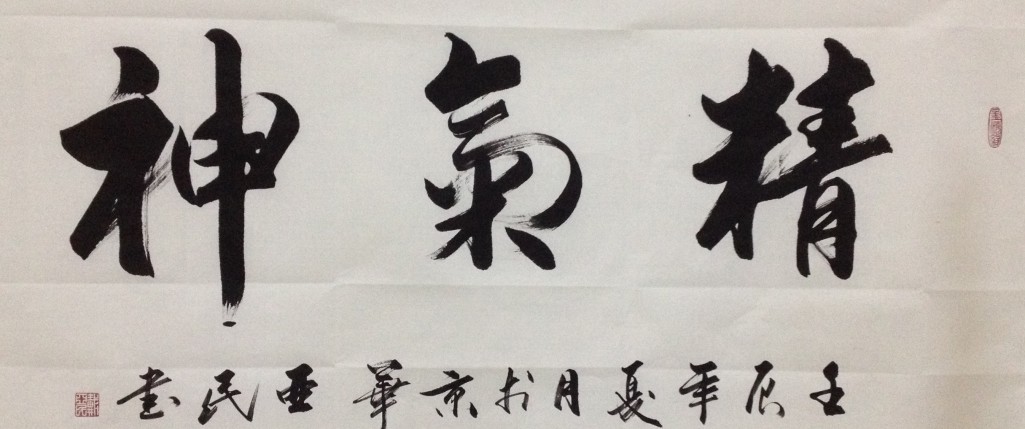 精氣神
壬辰年夏月於京華亜民书